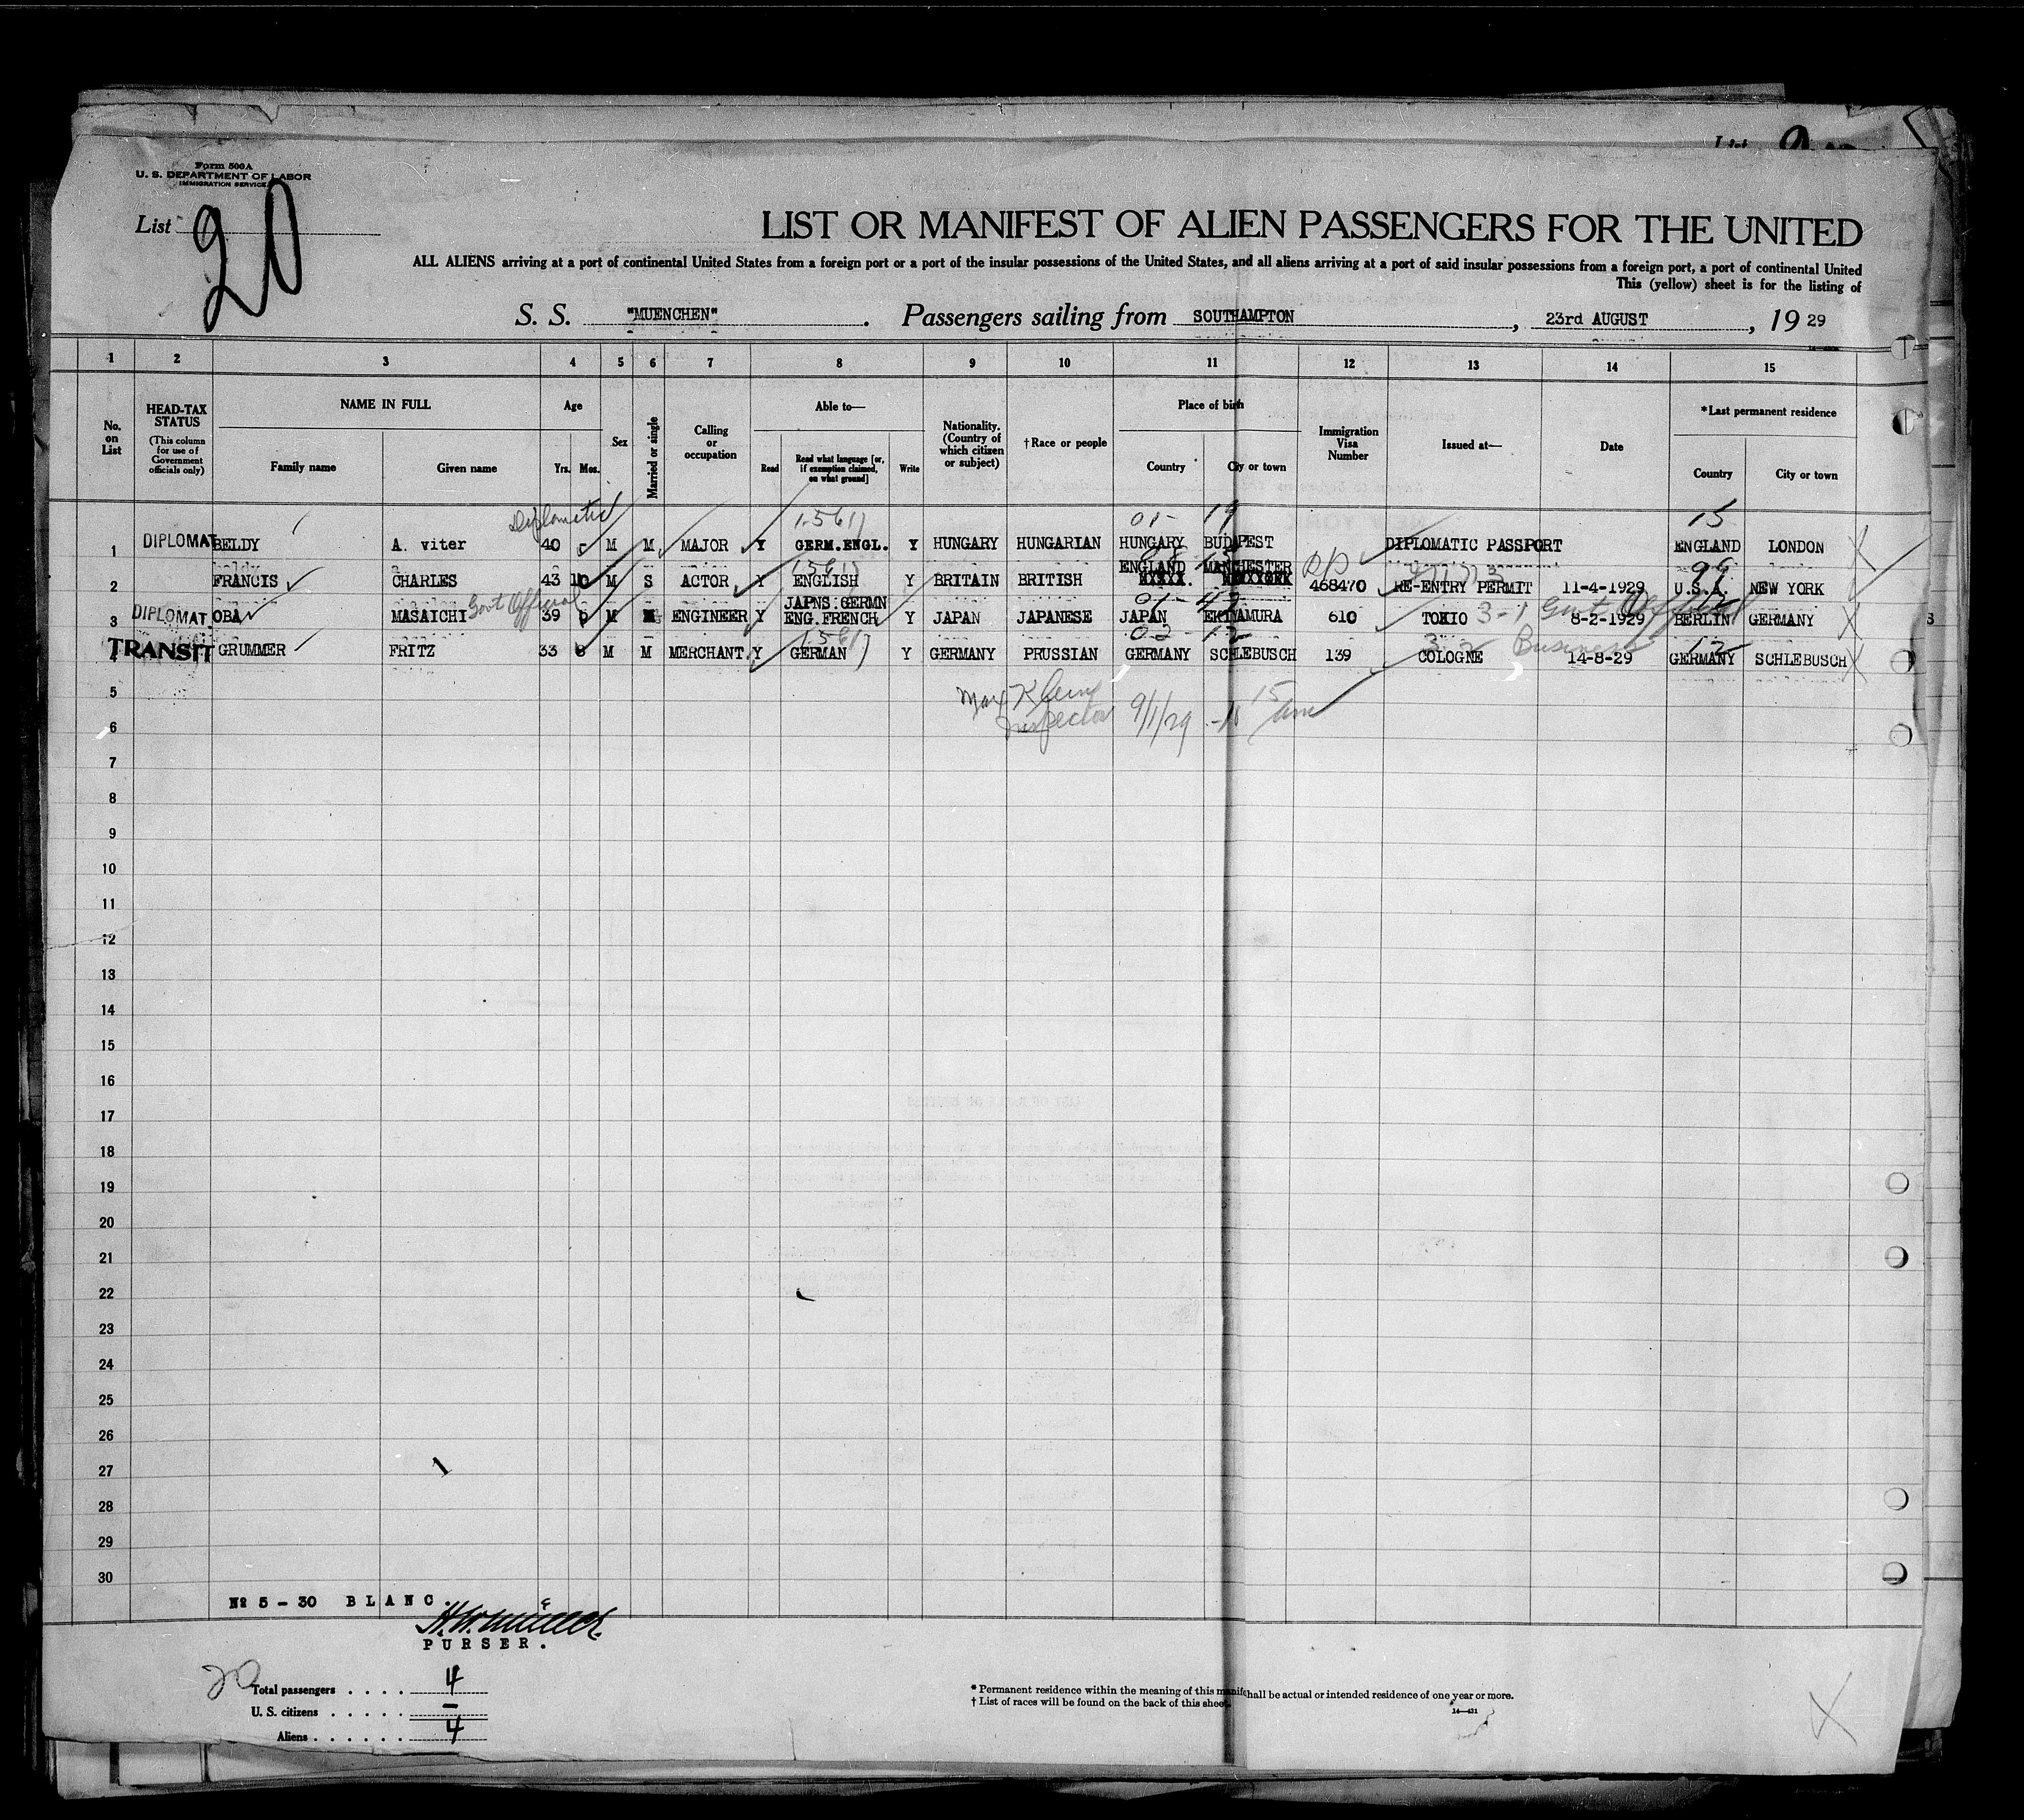 List
Form 500A
U. S. DEPARTMENT OF LABOR
IMMIGRATION SERVICE
List 20
LIST OR MANIFEST OF ALIEN PASSENGERS FOR THE UNITED
ALL ALIENS arriving at a port of continental United States from a foreign port or a port of the insular possessions of the United States, and all aliens arriving at a port of said insular possessions from a foreign port, a port of continental United
This (yellow) sheet is for the listing of
S. S. "MUENCHEN". Passengers sailing from SOUTHAMPTON, 23rd AUGUST, 1929
1 2 3 4 5 6 7 8 9 10 11 12 13 14 15
No. on List
HEAD-TAX STATUS
(This column for use of Government officials only)
NAME IN FULL
Family name
Given name
Age
Yrs. Mos.
Sex
Married or single
Calling or occupation
Able to—
Read
Read what language [or, if exemption claimed, on what ground]
Write
Nationality. (Country of which citizen or subject)
†Race or people
Place of birth
Country
City or town
Immigration Visa Number
Issued at—
Date
*Last permanent residence
Country
City or town
Diplomatic 1-5617 01- 19 15
1 DIPLOMAT BELDY A. viter 40 M M MAJOR Y GERM.ENGL. Y HUNGARY HUNGARIAN HUNGARY BUDAPEST DIPLOMATIC PASSPORT ENGLAND LONDON
99
2 FRANCIS CHARLES 43 10 M S ACTOR Y ENGLISH Y BRITAIN BRITISH ENGLAND MANCHESTER 468470 RE-ENTRY PERMIT 11-4-1929 U.S.A. NEW YORK
Govt Official 3-1 Govt Official
3 DIPLOMAT OBA MASAICHI 39 6 M ENGINEER Y JAPNS.GERMN ENG.FRENCH Y JAPAN JAPANESE JAPAN 610 TOKIO 8-2-1929 BERLIN GERMANY
02-12 3-2 Business 12
4 TRANSIT GRUMMER FRITZ 33 M M MERCHANT. Y GERMAN Y GERMANY PRUSSIAN GERMANY SCHLEBUSCH 139 COLOGNE 14-8-29 GERMANY SCHLEBUSCH
5
Inspector 9/1/29
6
7
8
9
10
11
12
13
14
15
16
17
18
19
20
21
22
23
24
25
26
27
28
29
30
№ 5 - 30 BLANC.
PURSER.
20
Total passengers . . . . 4
U. S. citizens . . . . . —
Aliens . . . . . . 4
* Permanent residence within the meaning of this manif shall be actual or intended residence of one year or more.
† List of races will be found on the back of this sheet.
14—431